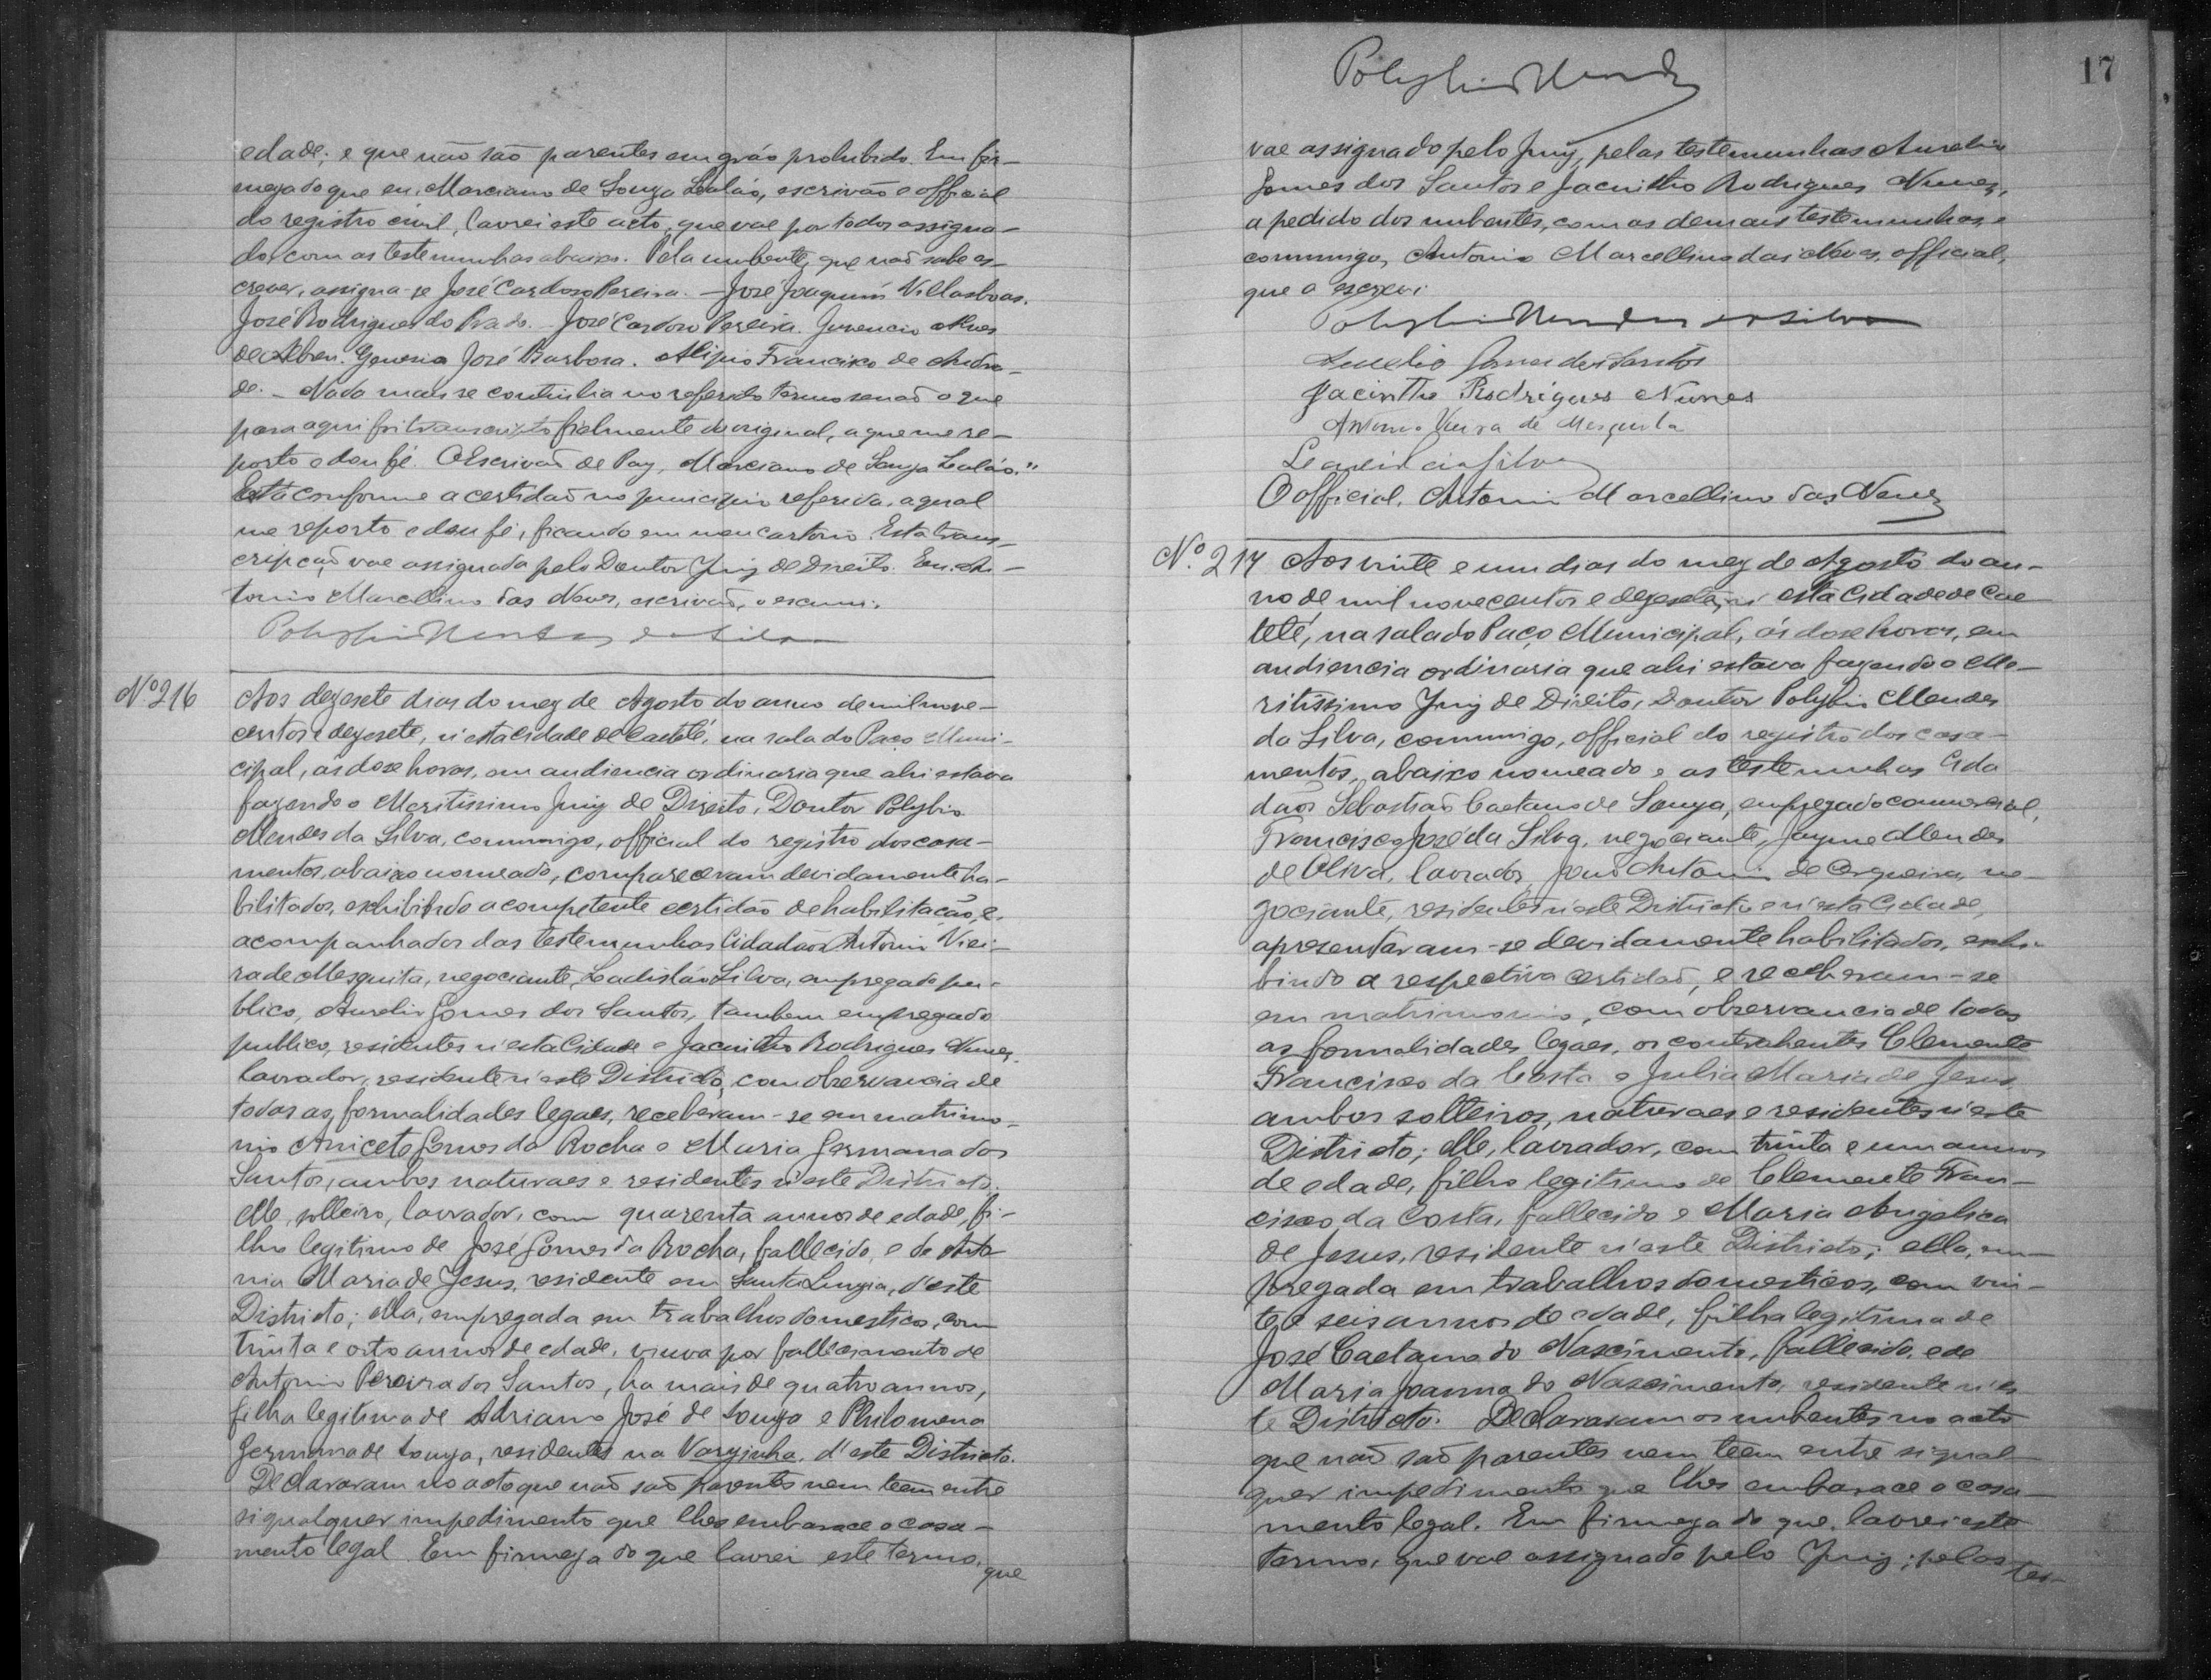 edade; e que não são parentes em gráo prohibido. Em fir-
meza do que eu, Marciano de Souza Lealão, escrivão e official
do registro civil, lavrei este acto, que vae por todos assigna-
do com as testemunhas abaixo. Pela nubente, que não sabe es-
crever, assigna-se José Cardoso Pereira. — José Joaquim Villasboas.
José Rodrigues do Prado. — José Cardoso Pereira. Juvencio Alves
de Abreu. Genesio José Barbosa. Alipio Francisco de Andra-
de. — Nada mais se continha no referido termo senão o que
para aqui foi transcripto fielmente do original, a que me re-
porto e dou fé. O Escrivão de Paz, Marciano de Souza Lealão."
Está conforme a certidão no principio referida, a qual
me reporto e dou fé, ficando em meu cartorio. Esta trans-
cripção vae assignada pelo Doutor Juiz de Direito. Eu, An-
tonio Marcellino das Neves, escrivão, o escrevi.
Polybio Mendes da Silva
Nº 216 Aos dezesete dias do mez de Agosto do anno de mil nove-
centos e dezesete, n'esta Cidade de Caeteté, na sala do Paço Muni-
cipal, ás dose horas, em audiencia ordinaria que ahi estava
fazendo o Meritissimo Juiz de Direito, Doutor Polybio
Mendes da Silva, commigo, official do registro dos casa-
mentos, abaixo nomeado, compareceram devidamente ha-
bilitados, exhibindo a competente certidão de habilitação, e
acompanhados das testemunhas Cidadãos Antonio Viei-
ra de Mesquita, negociante, Ladisláo Silva, empregado pu-
blico, Aurelio Gomes dos Santos, tambem empregado
publico, residentes n'esta Cidade e Jacintho Rodrigues Nunes,
lavrador, residente n'este Districto, com observancia de
todas as formalidades legaes, receberam-se em matrimo-
nio Aniceto Gomes da Rocha e Maria Germana dos
Santos, ambos naturaes e residentes n'este Districto;
elle, solteiro, lavrador, com quarenta annos de edade, fi-
lho legitimo de José Gomes da Rocha, fallecido, e de Anto
nia Maria de Jesus, residente em Santa Luzia, d'este
Districto; ella, empregada em trabalhos domesticos, com
trinta e oito annos de edade, viuva por fallecimento de
Antonio Pereira dos Santos, ha mais de quatro annos,
filha legitima de Adriano José de Souza e Philomena
Germana de Souza, residentes na Varginha, d'este Districto.
Declararam no acto que não são parentes nem teem entre
si qualquer impedimento que lhes embarace o casa-
mento legal. Em firmeza do que lavrei este termo, que
17
Polybio Mendes
vae assignado pelo Juiz, pelas testemunhas Aurelio
Gomes dos Santos e Jacintho Rodrigues Nunes,
a pedido dos nubentes, com as demais testemunhas, e
commigo, Antonio Marcellino das Neves, official,
que o escrevi.
Polybio Mendes da Silva
Aurelio Gomes dos Santos
Jacintho Rodrigues Nunes
Antonio Vieira de Mesquita
Silva
O official, Antonio Marcellino das Neves
Nº 217 Aos vinte e um dias do mez de Agosto do an-
no de mil novecentos e dezesete, n'esta Cidade de Cae
teté, na sala do Paço Municipal, ás dose horas, em
audiencia ordinaria que ahi estava fazendo o Me-
ritissimo Juiz de Direito, Doutor Polybio Mendes
da Silva, commigo, official do registro dos casa-
mentos, abaixo nomeado e as testemunhas Cida
dãos Sebastião Caetano de Souza, empregado commercial,
Francisco José da Silva, negociante, Jayme Mendes
de Oliva, lavrador, João Antonio de Cerqueira, ne-
gociante, residentes n'este Districto e n'esta Cidade,
apresentaram-se devidamente habilitados, exhi-
bindo a respectiva certidão, e receberam-se
em matrimonio, com observancia de todas
as formalidades legaes, os contrahentes Clemente
Francisco da Costa e Julia Maria de Jesus
ambos solteiros, naturaes e residentes n'este
Districto; elle, lavrador, com trinta e um annos
de edade, filho legitimo de Clemente Fran-
cisco da Costa, fallecido e Maria Angelica
de Jesus, residente n'este Districto; ella, em-
pregada em trabalhos domesticos, com vin-
te e seis annos de edade, filha legitima de
José Caetano do Nascimento, fallecido, e de
Maria Joanna do Nascimento, residente n'es
te Districto. Declararam os nubentes no acto
que não são parentes nem teem entre si qual-
quer impedimento que lhes embarace o casa-
mento legal. Em firmeza do que, lavrei este
termo, que vae assignado pelo Juiz, pelas tes-